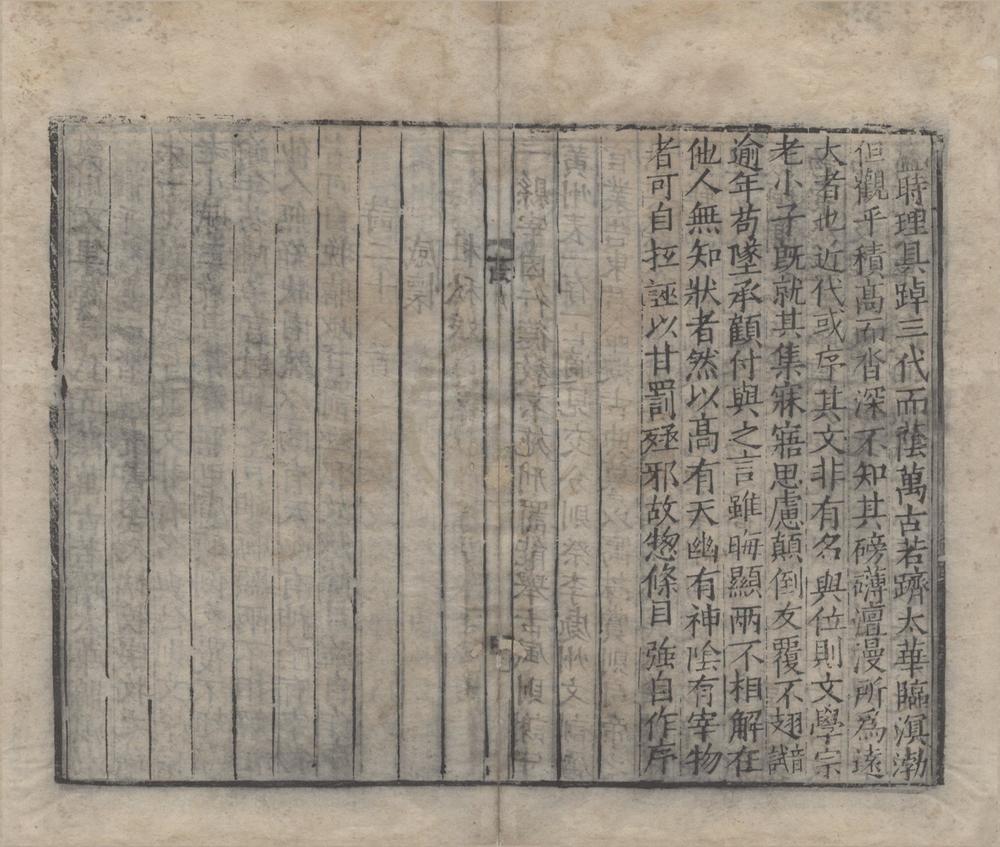 時理具踔三代而蔭萬古若躋太華臨溟渤
但觀乎積高而沓深不知其磅礴澶漫所爲遠
大者也近代或序其文非有名與位則文學宗
老小子旣就其集寐寤思慮顛倒反覆不翅
逾年苟墜承顧付與之言雖晦顯兩不相解在
他人無知狀者然以髙有天幽有神陰有宰物
者可自抂誣以甘罰殛邪故惣條目強自作序